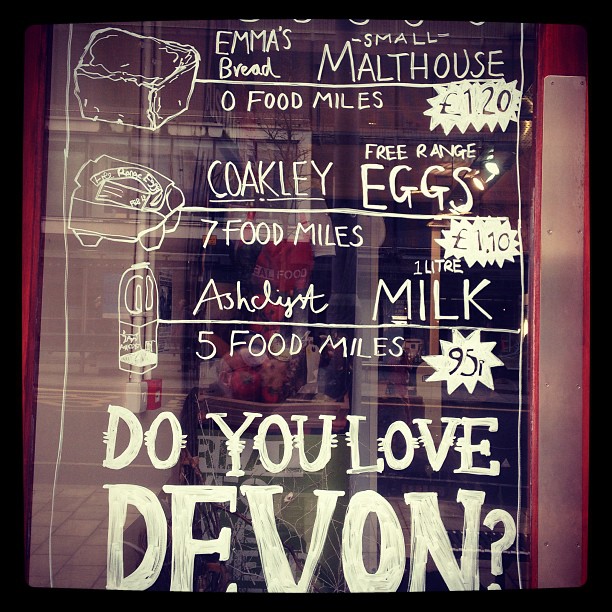 EMMA'S Bread -SMALL- MALTHOUSE
0 FOOD MILES £1.20
COAKLEY FREE RANGE EGGS
7 FOOD MILES £1.10
Ashclyst 1 LITRE MILK
5 FOOD MILES 95p
DO YOU LOVE
DEVON?